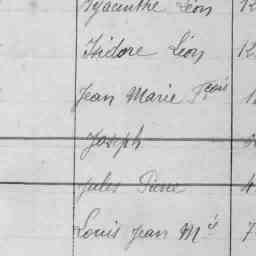 Hyacinthe Léon
Isidore Léon
Jean Marie Fçois
Joseph
Jules Pierre 4
Louis Jean Mie 7